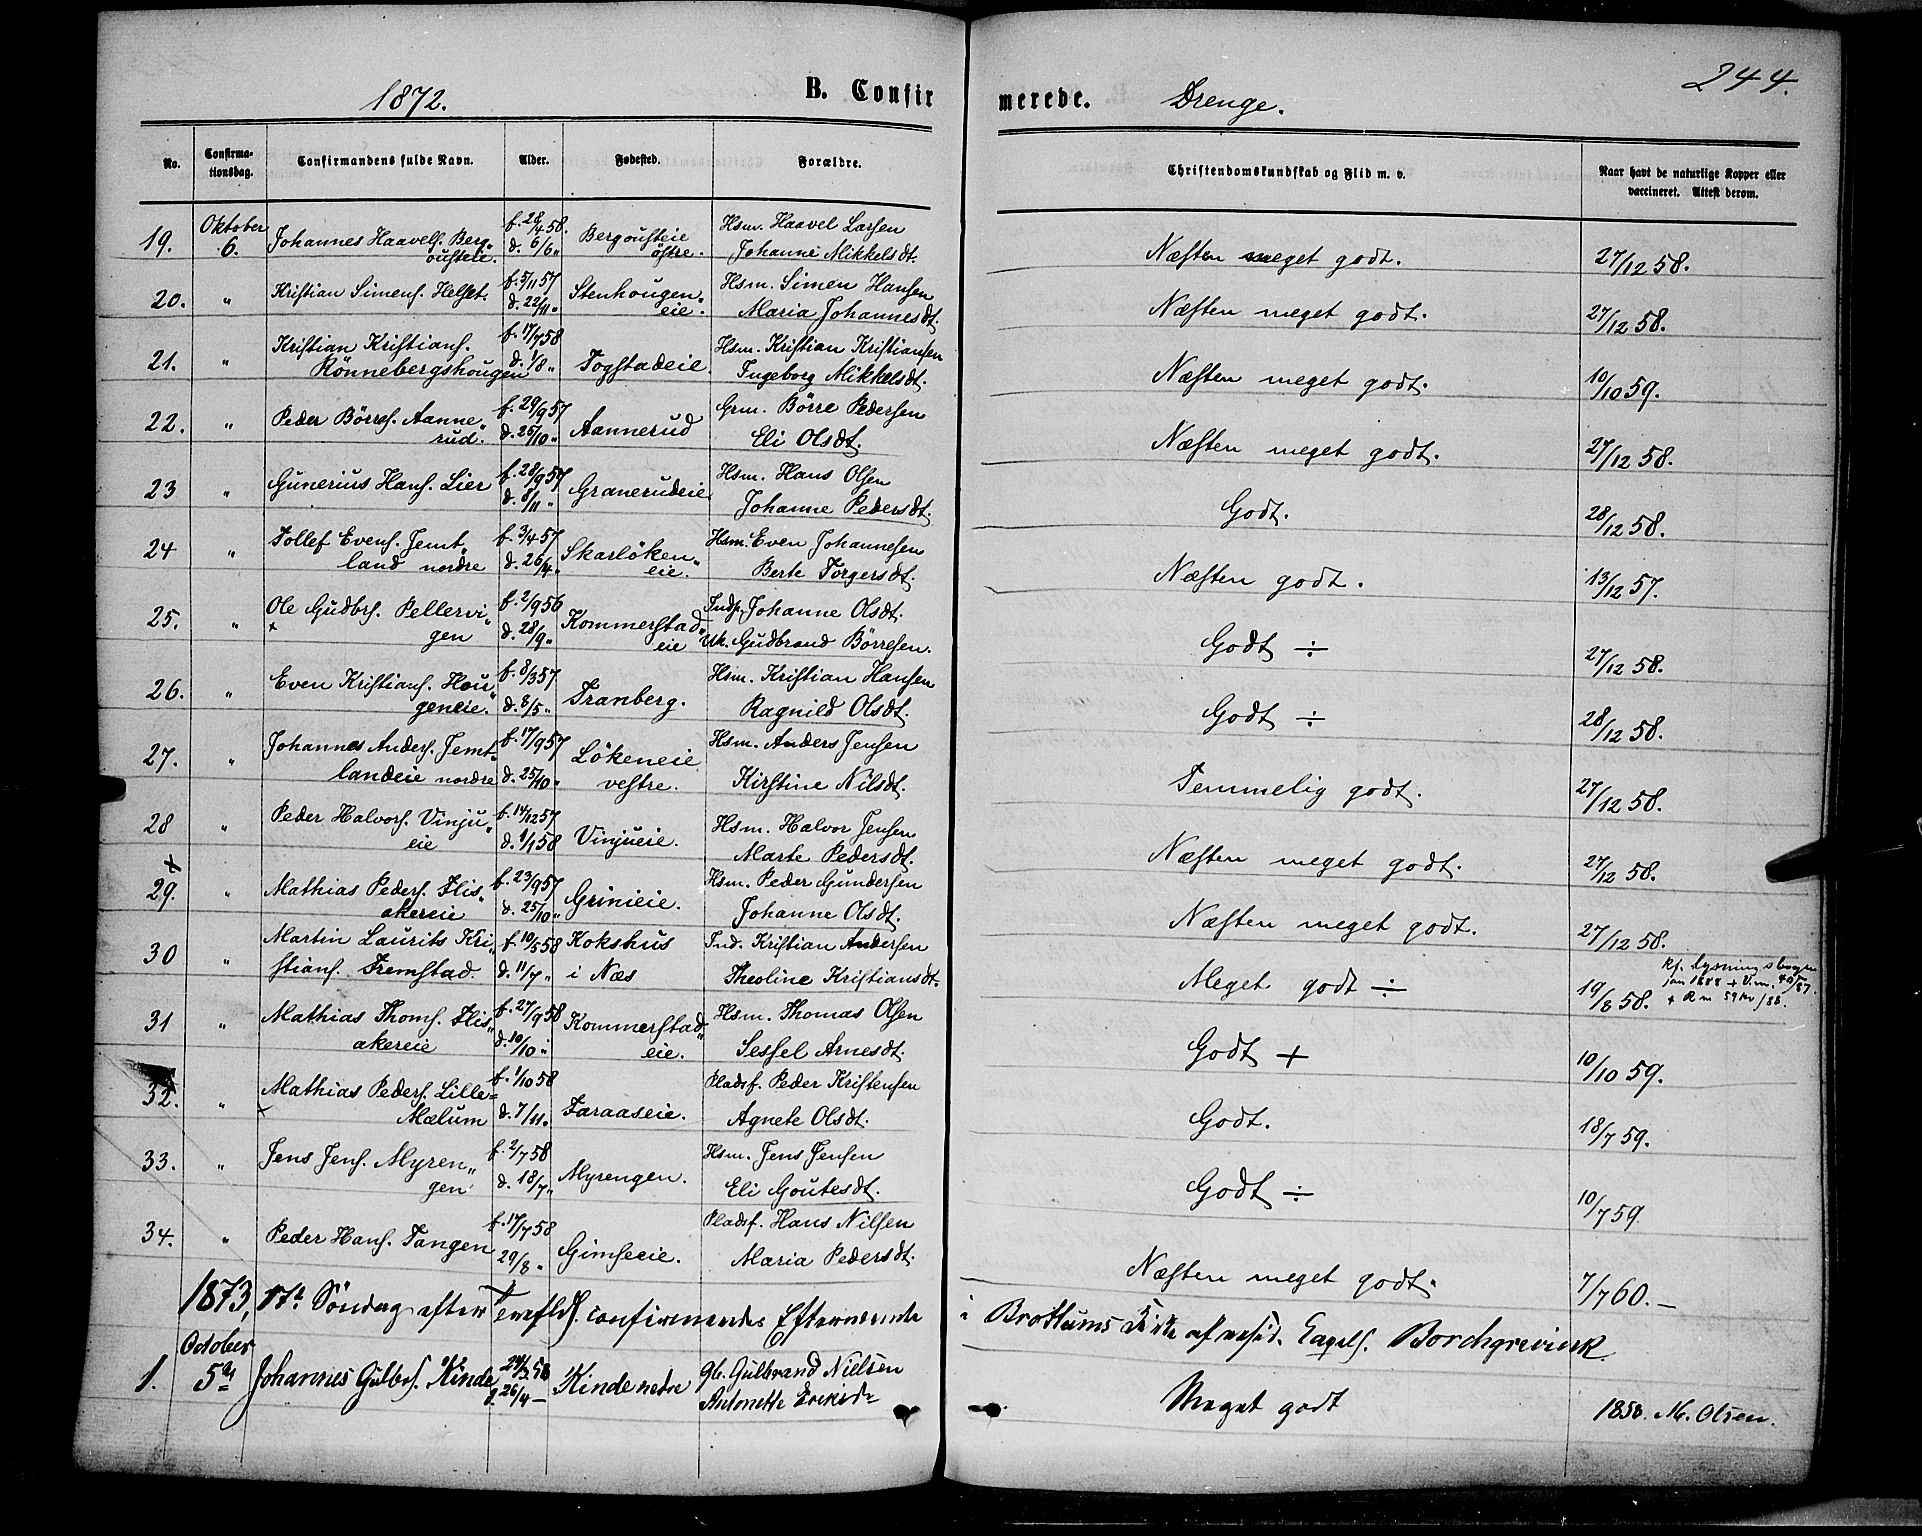 1872.
B. Confirmerede.
Drenge.
244.
No.
Confirmationsdag.
Confirmandens fulde Navn.
Alder.
Fødested.
Forældre.
Christendomskundskab og Flid m. v.
Naar havt de naturlige Kopper eller vaccineret. Attest derom.
19. Oktober 6. Johannes Haavels. Bergousteie. f. 28/4 58. d. 6/6 " Bergousteie östre. Hsm. Haavel Larsen Johanne Mikkelsdt. Næsten meget godt. 27/12 58.
20. " Kristian Simens. Helset. f. 5/11 57 d. 22/11 " Stenhougeneie. Hsm. Simen Hansen Maria Johannesdt. Næsten meget godt. 27/12 58.
21. " Kristian Kristians. Rönnebergshougen f. 17/7 58 d. 1/8 " Togstadeie Hsm. Kristian Kristiansen Ingeborg Mikkelsdt. Næsten meget godt. 10/10 59.
22. " Peder Börres. Aannerud. f. 29/9 57 d. 25/10 " Aannerud Grm. Börre Pedersen Eli Olsdt. Næsten meget godt. 27/12 58.
23 " Gunerius Hans. Lier f. 28/9 57 d. 8/11 " Graneru deie Hsm. Hans Olsen Johanne Pedersdt. Godt. 28/12 58.
24 " Tollef Evens. Jemtland nordre f. 3/4 57 d. 26/4 " Skarlökeneie. Hsm. Even Johannesen Berte Torgersdt. Næsten godt. 13/12 57.
25. " Ole Gudbrs. Pellervigen + f. 2/9 56 d. 28/9 " Kommerstadeie Inds. Johanne Olsdt. Uk. Gudbrand Börresen. Godt ÷ 27/12 58.
26. " Even Kristians. Hougeneie. f. 8/3 57 d. 8/5 " Tranberg. Hsm. Kristian Hansen Ragnild Olsdt. Godt ÷ 28/12 58.
27. " Johannes Anders. Jemtlandeie nordre f. 17/9 57 d. 25/10 " Lökeneie vestre. Hsm. Anders Jensen Kirstine Nilsdt. Temmelig godt. 27/12 58.
28 " Peder Halvors. Vinjueie f. 14/12 57 d. 1/1 58 Vinjueie. Hsm. Halvor Jensen Marte Pedersdt. Næsten meget godt. 27/12 58.
+ 29. " Mathias Peders. Flisakereie f. 23/9 57 d. 25/10 " Grinieie. Hsm. Peder Gundersen Johanne Olsdt. Næsten meget godt. 27/12 58.
30 " Martin Laurits Kristians. Fremstad. f. 10/5 58 d. 11/7 " Kokshus i Næs Ind. Kristian Andersen Theoline Kristiansdt. Meget godt ÷ 19/8 58.
31 " Mathias Thoms. Flisakereie f. 27/9 58 d. 10/10 " Kommerstadeie. Hsm. Thomas Olsen Sessel Arnesdt. Godt + 10/10 59.
32. " Mathias Peders. Lille-Mælum + f. 1/10 58 d. 7/11. Faraaseie. Pladsf. Peder Kristensen Agnete Olsdt. Godt. 18/7 59.
33. " Jens Jens. Myrengen f. 2/7 58 d. 18/7 " Myrengen. Hsm. Jens Jensen Eli Goutesdt. Godt ÷ 10/7 59
34. " Peder Hans. Tangen f. 17/7 58 29/8 " Gimseeie. Pladsf. Hans Nilsen Maria Pedersdt. Næsten meget godt. 7/7 60.—
1873, 17de Söndag efter confirmeredes Efternævnte i Brottums Kirke af resid. Capel. Borchgrevink.
1. October 5te Johannes Gulbrs. Kinde 24/3 58 d. 26/4 — Kinde nedre Gb. Gulbrand Nielsen Antonette Ericsdr Meget godt 1858. M. Olsen.